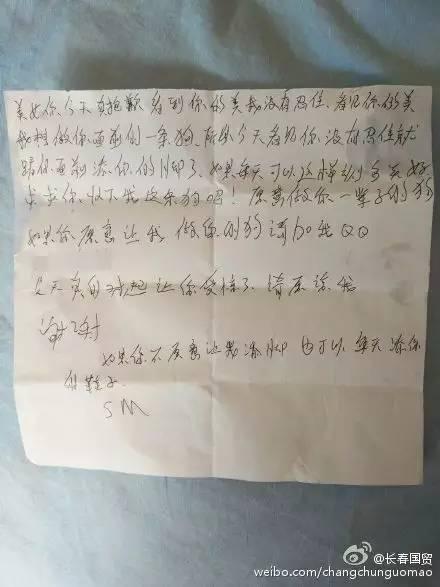 美女你今天真抱歉看到你的美我没有忍住.看见你的美
我想做你面前的一条狗.所以今天看见你没有忍住就
跪你面前添你的脚了.如果每天可以这样多美好
求求你收下我这条狗吧!愿意做你一辈子的狗
如果你愿意让我做你的狗请加我QQ
今天真的对起让你受惊了.请原谅我
谢谢
如果你不愿意让我添脚也可以每天添你
的鞋子.
SM
@长春国贸
weibo.com/changchunguomao